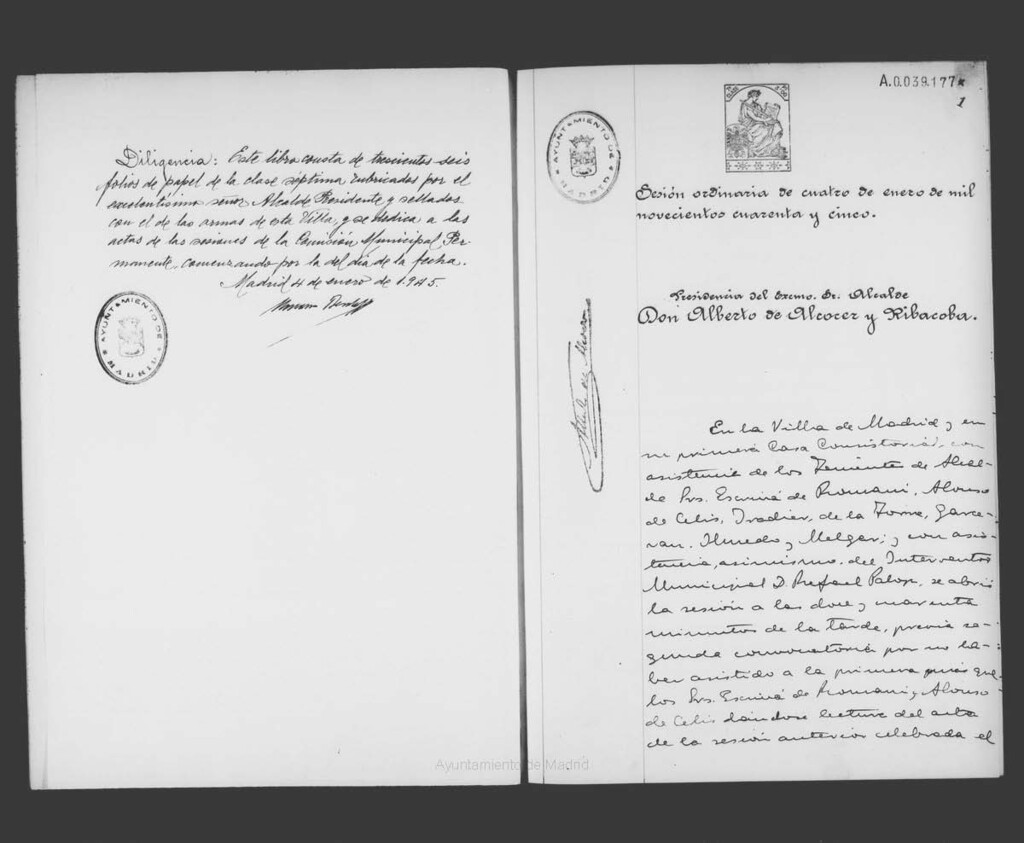 Diligencia: Este libro consta de trescientos seis
folios de papel de la clase séptima rubricados por el
excelentísimo señor Alcalde Presidente y sellados
con el de las armas de esta Villa, y se dedica a las
actas de las sesiones de la Comisión Municipal Per
manente, comenzando por la del día de la fecha.
Madrid 4 de enero de 1945.
AYUNTAMIENTO DE
MADRID
A.0.039.177*
1
AYUNTAMIENTO DE
MADRID
Sesión ordinaria de cuatro de enero de mil
novecientos cuarenta y cinco.
Presidencia del Excmo. Sr. Alcalde
Don Alberto de Alcocer y Ribacoba.
En la Villa de Madrid y en
su primera Casa Consistorial, con
asistencia de los Tenientes de Alcal-
de Srs. Escrivá de Romaní, Alonso
de Celis, Iradier, de la Torre, Garce-
ran, Olmedo y Melgar; y con asis-
tencia, asimismo, del Interventor
Municipal D. Rafael se abrió
la sesión a las doce y cuarenta
minutos de la tarde, previa se-
gunda convocatoria por no ha-
ber asistido a la primera más que
los Srs. Escrivá de Romaní y Alonso
de Celis dándose lectura del acta
de la sesión anterior celebrada el
Ayuntamiento de Madrid